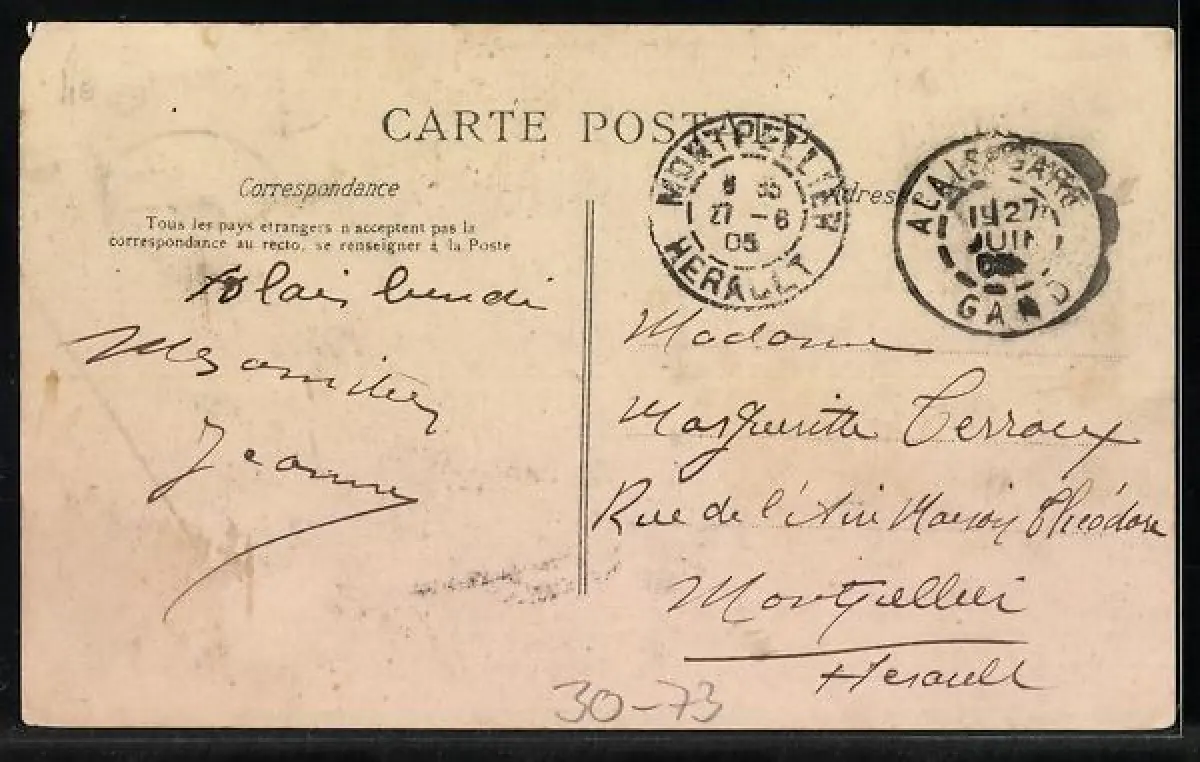 CARTE POSTALE
Correspondance
Tous les pays etrangers n'acceptent pas la
correspondance au recto, se renseigner à la Poste
Alais lundi
Mes amitiés
Jeanne
Adresse
MONTPELLIER
27 -6
05
HERAULT
ALAIS-GARE
27
JUIN
GARD
Madame
Marguerite Terroux
Rue de l'Aire Maison Théodore
Montpellier
Herault
30-73